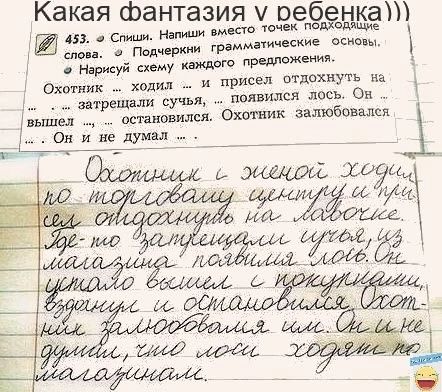 Какая фантазия у ребенка)))
453. Спиши. Напиши вместо точек подходящие
слова. Подчеркни грамматические основы.
Нарисуй схему каждого предложения.
Охотник ... ходил ... и присел отдохнуть на
... . ... затрещали сучья, ... появился лось. Он ...
вышел ..., ... остановился. Охотник залюбовался
... . Он и не думал ... .
Охотник с женой ходил
по торговому центру и при-
сел отдохнуть на лавочке.
Где-то затрещали сучья, из
магазина появился лось. Он
устало вышел с покупками,
вздохнул и остановился. Охот-
ник залюбовался им. Он и не
думал, что лоси ходят по
магазинам.